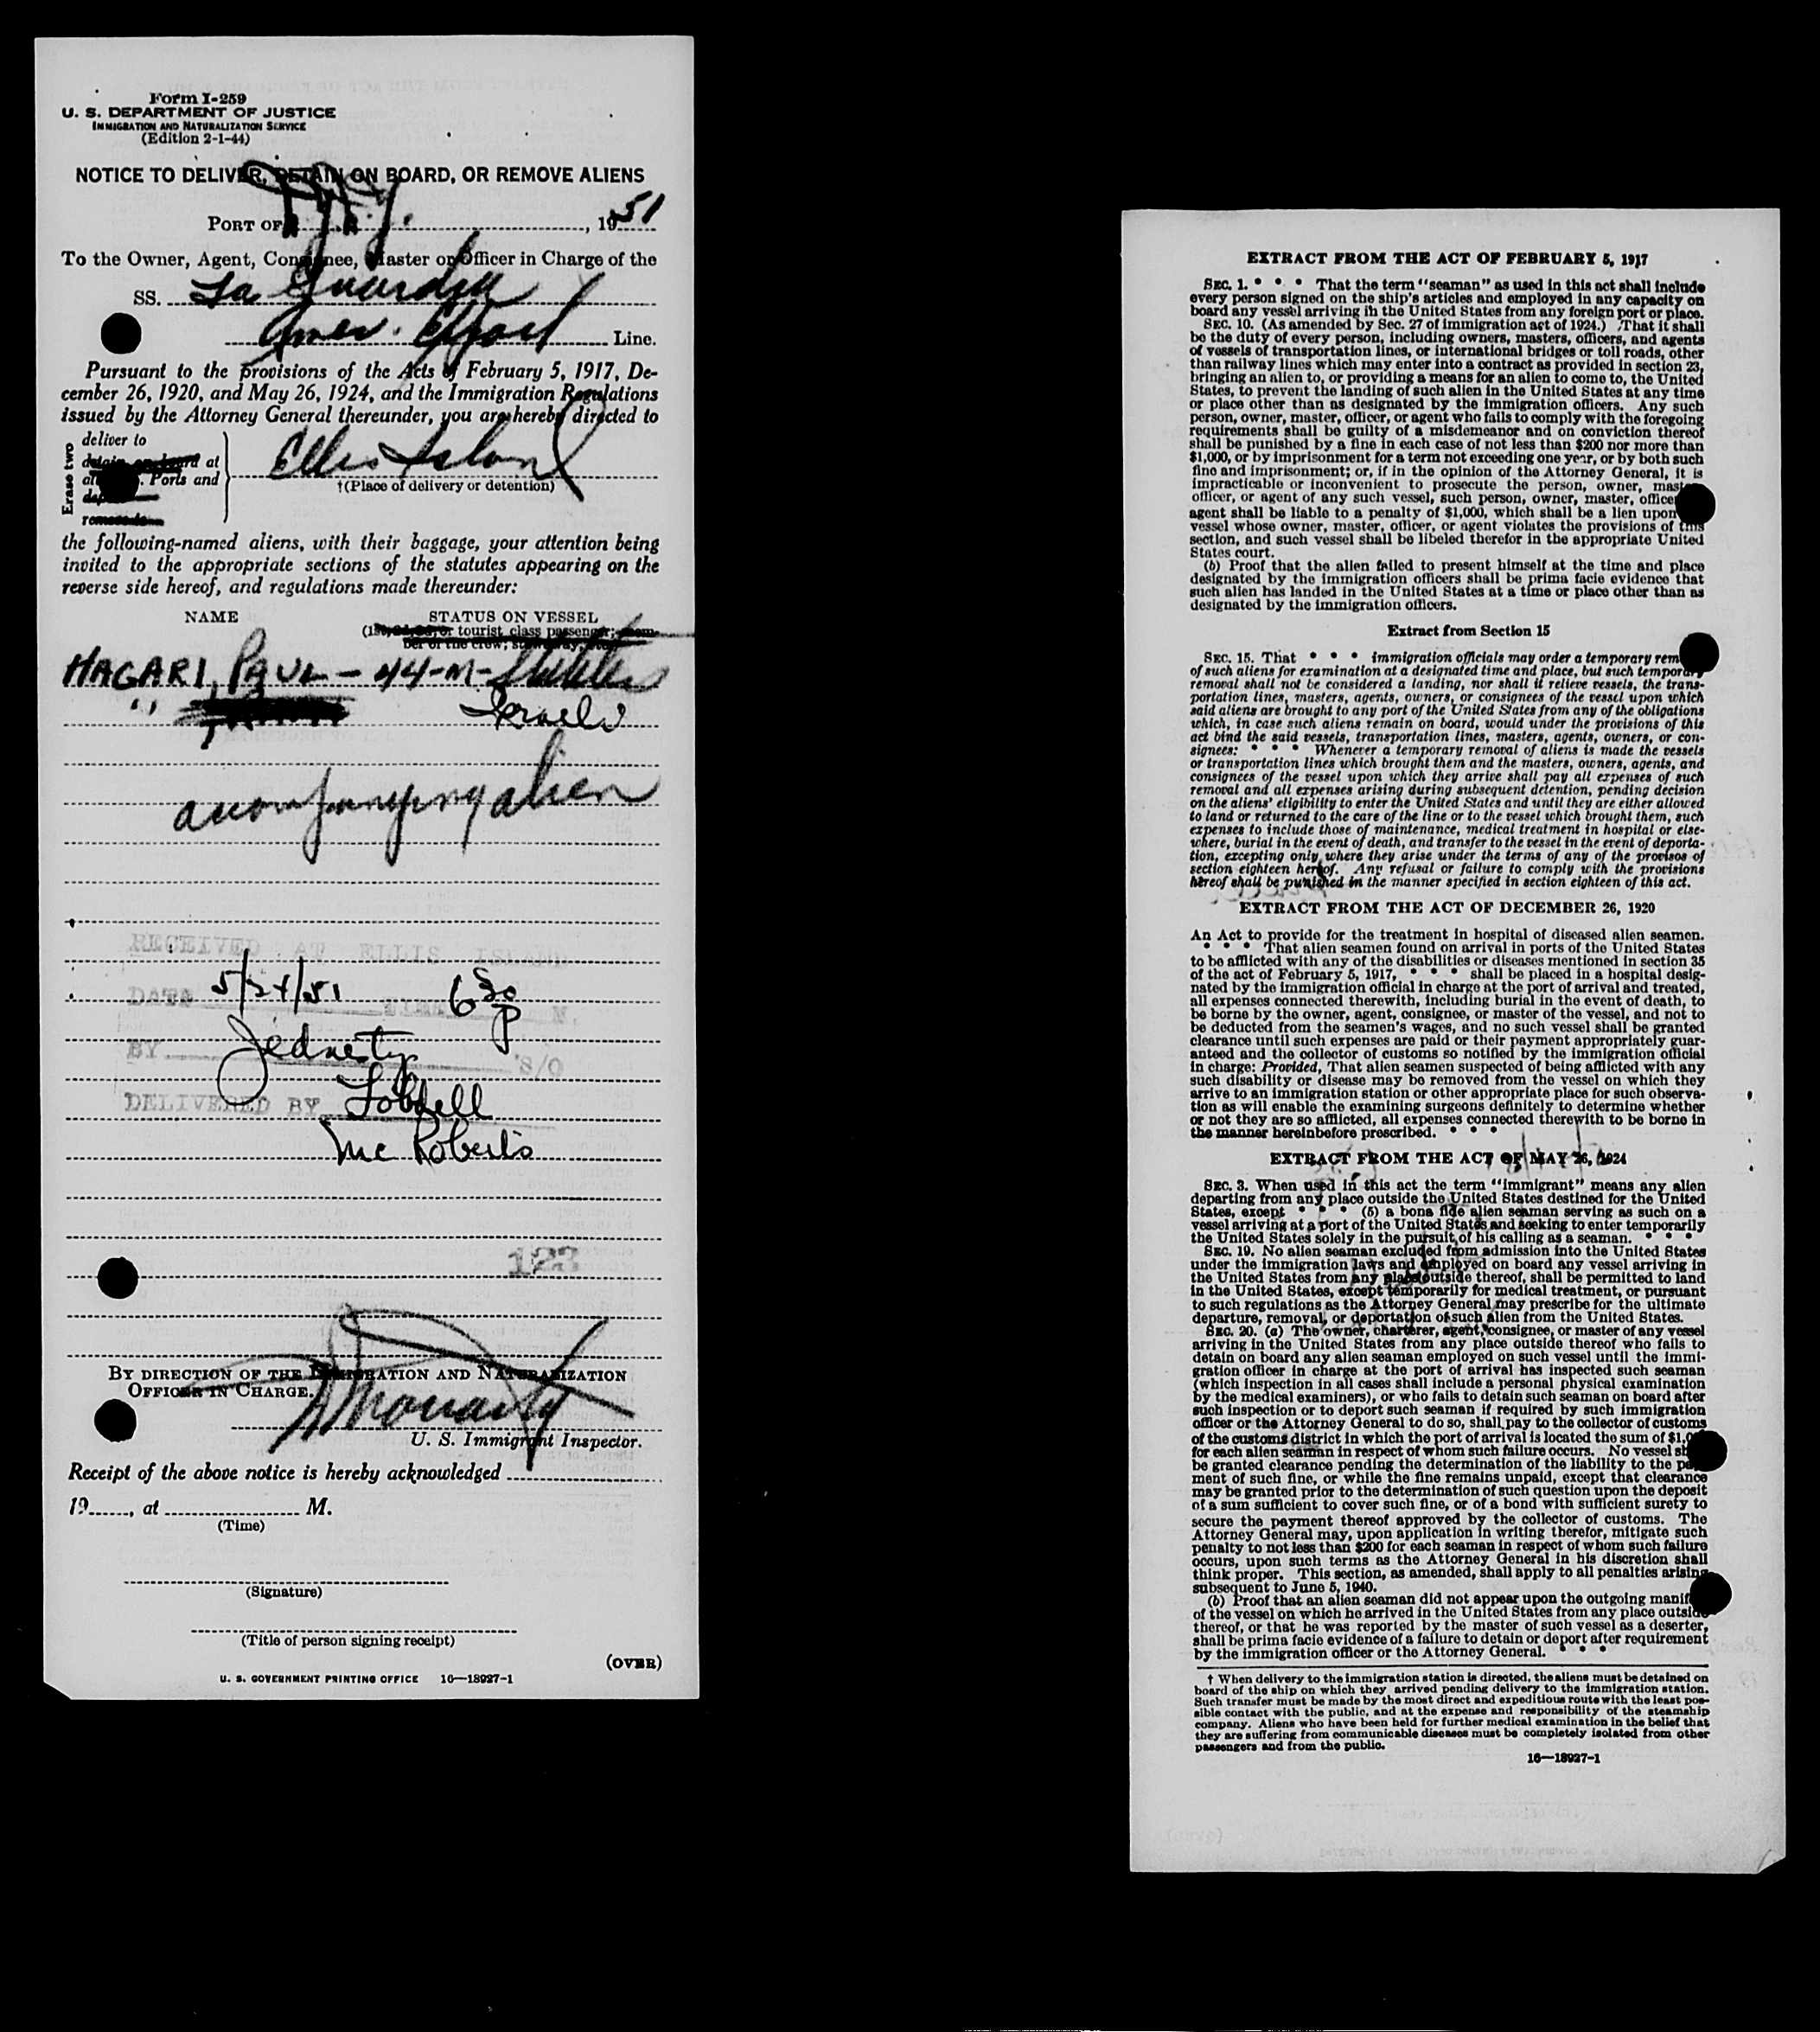 Form I-259
U. S. DEPARTMENT OF JUSTICE
IMMIGRATION AND NATURALIZATION SERVICE
(Edition 2-1-44)
NOTICE TO DELIVER, DETAIN ON BOARD, OR REMOVE ALIENS
PORT OF N.Y. , 1951
To the Owner, Agent, Consignee, Master or Officer in Charge of the
SS. La Guardia
Amer. Export Line.
Pursuant to the provisions of the Acts of February 5, 1917, De-
cember 26, 1920, and May 26, 1924, and the Immigration Regulations
issued by the Attorney General thereunder, you are hereby directed to
Erase two
deliver to
detain on board at
Ports and
remove to
Ellis Island
†(Place of delivery or detention)
the following-named aliens, with their baggage, your attention being
invited to the appropriate sections of the statutes appearing on the
reverse side hereof, and regulations made thereunder:
NAME STATUS ON VESSEL
(1st, 2d, 3d, or tourist class passenger; mem-
ber of the crew; stowaway, etc.)
HAGARI, PAUL - 44-M-
" Israeli
accompanying alien
RECEIVED AT ELLIS ISLAND
DATE 5/24/51 TIME 6 30 P M.
BY S/O
DELIVERED BY Lobdell
McRoberts
123
BY DIRECTION OF THE IMMIGRATION AND NATURALIZATION
OFFICER IN CHARGE.
U. S. Immigrant Inspector.
Receipt of the above notice is hereby acknowledged
19, at M.
(Time)
(Signature)
(Title of person signing receipt)
(OVER)
U. S. GOVERNMENT PRINTING OFFICE 16—18927-1
EXTRACT FROM THE ACT OF FEBRUARY 5, 1917
SEC. 1. * * * That the term "seaman" as used in this act shall include
every person signed on the ship's articles and employed in any capacity on
board any vessel arriving in the United States from any foreign port or place.
SEC. 10. (As amended by Sec. 27 of immigration act of 1924.) That it shall
be the duty of every person, including owners, masters, officers, and agents
of vessels of transportation lines, or international bridges or toll roads, other
than railway lines which may enter into a contract as provided in section 23,
bringing an alien to, or providing a means for an alien to come to, the United
States, to prevent the landing of such alien in the United States at any time
or place other than as designated by the immigration officers. Any such
person, owner, master, officer, or agent who fails to comply with the foregoing
requirements shall be guilty of a misdemeanor and on conviction thereof
shall be punished by a fine in each case of not less than $200 nor more than
$1,000, or by imprisonment for a term not exceeding one year, or by both such
fine and imprisonment; or, if in the opinion of the Attorney General, it is
impracticable or inconvenient to prosecute the person, owner, master,
officer, or agent of any such vessel, such person, owner, master, officer,
agent shall be liable to a penalty of $1,000, which shall be a lien upon
vessel whose owner, master, officer, or agent violates the provisions of this
section, and such vessel shall be libeled therefor in the appropriate United
States court.
(b) Proof that the alien failed to present himself at the time and place
designated by the immigration officers shall be prima facie evidence that
such alien has landed in the United States at a time or place other than as
designated by the immigration officers.
Extract from Section 15
SEC. 15. That * * * immigration officials may order a temporary removal
of such aliens for examination at a designated time and place, but such temporary
removal shall not be considered a landing, nor shall it relieve vessels, the trans-
portation lines, masters, agents, owners, or consignees of the vessel upon which
said aliens are brought to any port of the United States from any of the obligations
which, in case such aliens remain on board, would under the provisions of this
act bind the said vessels, transportation lines, masters, agents, owners, or con-
signees: * * * Whenever a temporary removal of aliens is made the vessels
or transportation lines which brought them and the masters, owners, agents, and
consignees of the vessel upon which they arrive shall pay all expenses of such
removal and all expenses arising during subsequent detention, pending decision
on the aliens' eligibility to enter the United States and until they are either allowed
to land or returned to the care of the line or to the vessel which brought them, such
expenses to include those of maintenance, medical treatment in hospital or else-
where, burial in the event of death, and transfer to the vessel in the event of deporta-
tion, excepting only where they arise under the terms of any of the provisos of
section eighteen hereof. Any refusal or failure to comply with the provisions
hereof shall be punished in the manner specified in section eighteen of this act.
EXTRACT FROM THE ACT OF DECEMBER 26, 1920
An Act to provide for the treatment in hospital of diseased alien seamen.
* * * That alien seamen found on arrival in ports of the United States
to be afflicted with any of the disabilities or diseases mentioned in section 35
of the act of February 5, 1917, * * * shall be placed in a hospital desig-
nated by the immigration official in charge at the port of arrival and treated,
all expenses connected therewith, including burial in the event of death, to
be borne by the owner, agent, consignee, or master of the vessel, and not to
be deducted from the seamen's wages, and no such vessel shall be granted
clearance until such expenses are paid or their payment appropriately guar-
anteed and the collector of customs so notified by the immigration official
in charge: Provided, That alien seamen suspected of being afflicted with any
such disability or disease may be removed from the vessel on which they
arrive to an immigration station or other appropriate place for such observa-
tion as will enable the examining surgeons definitely to determine whether
or not they are so afflicted, all expenses connected therewith to be borne in
the manner hereinbefore prescribed. * * *
EXTRACT FROM THE ACT OF MAY 26, 1924
SEC. 3. When used in this act the term "immigrant" means any alien
departing from any place outside the United States destined for the United
States, except * * * (5) a bona fide alien seaman serving as such on a
vessel arriving at a port of the United States and seeking to enter temporarily
the United States solely in the pursuit of his calling as a seaman. * * *
SEC. 19. No alien seaman excluded from admission into the United States
under the immigration laws and employed on board any vessel arriving in
the United States from any place outside thereof, shall be permitted to land
in the United States, except temporarily for medical treatment, or pursuant
to such regulations as the Attorney General may prescribe for the ultimate
departure, removal, or deportation of such alien from the United States.
SEC. 20. (a) The owner, charterer, agent, consignee, or master of any vessel
arriving in the United States from any place outside thereof who fails to
detain on board any alien seaman employed on such vessel until the immi-
gration officer in charge at the port of arrival has inspected such seaman
(which inspection in all cases shall include a personal physical examination
by the medical examiners), or who fails to detain such seaman on board after
such inspection or to deport such seaman if required by such immigration
officer or the Attorney General to do so, shall pay to the collector of customs
of the customs district in which the port of arrival is located the sum of $1,000
for each alien seaman in respect of whom such failure occurs. No vessel shall
be granted clearance pending the determination of the liability to the pay-
ment of such fine, or while the fine remains unpaid, except that clearance
may be granted prior to the determination of such question upon the deposit
of a sum sufficient to cover such fine, or of a bond with sufficient surety to
secure the payment thereof approved by the collector of customs. The
Attorney General may, upon application in writing therefor, mitigate such
penalty to not less than $200 for each seaman in respect of whom such failure
occurs, upon such terms as the Attorney General in his discretion shall
think proper. This section, as amended, shall apply to all penalties arising
subsequent to June 5, 1940.
(b) Proof that an alien seaman did not appear upon the outgoing manifest
of the vessel on which he arrived in the United States from any place outside
thereof, or that he was reported by the master of such vessel as a deserter,
shall be prima facie evidence of a failure to detain or deport after requirement
by the immigration officer or the Attorney General. * * *
† When delivery to the immigration station is directed, the aliens must be detained on
board of the ship on which they arrived pending delivery to the immigration station.
Such transfer must be made by the most direct and expeditious route with the least pos-
sible contact with the public, and at the expense and responsibility of the steamship
company. Aliens who have been held for further medical examination in the belief that
they are suffering from communicable diseases must be completely isolated from other
passengers and from the public.
16—18927-1